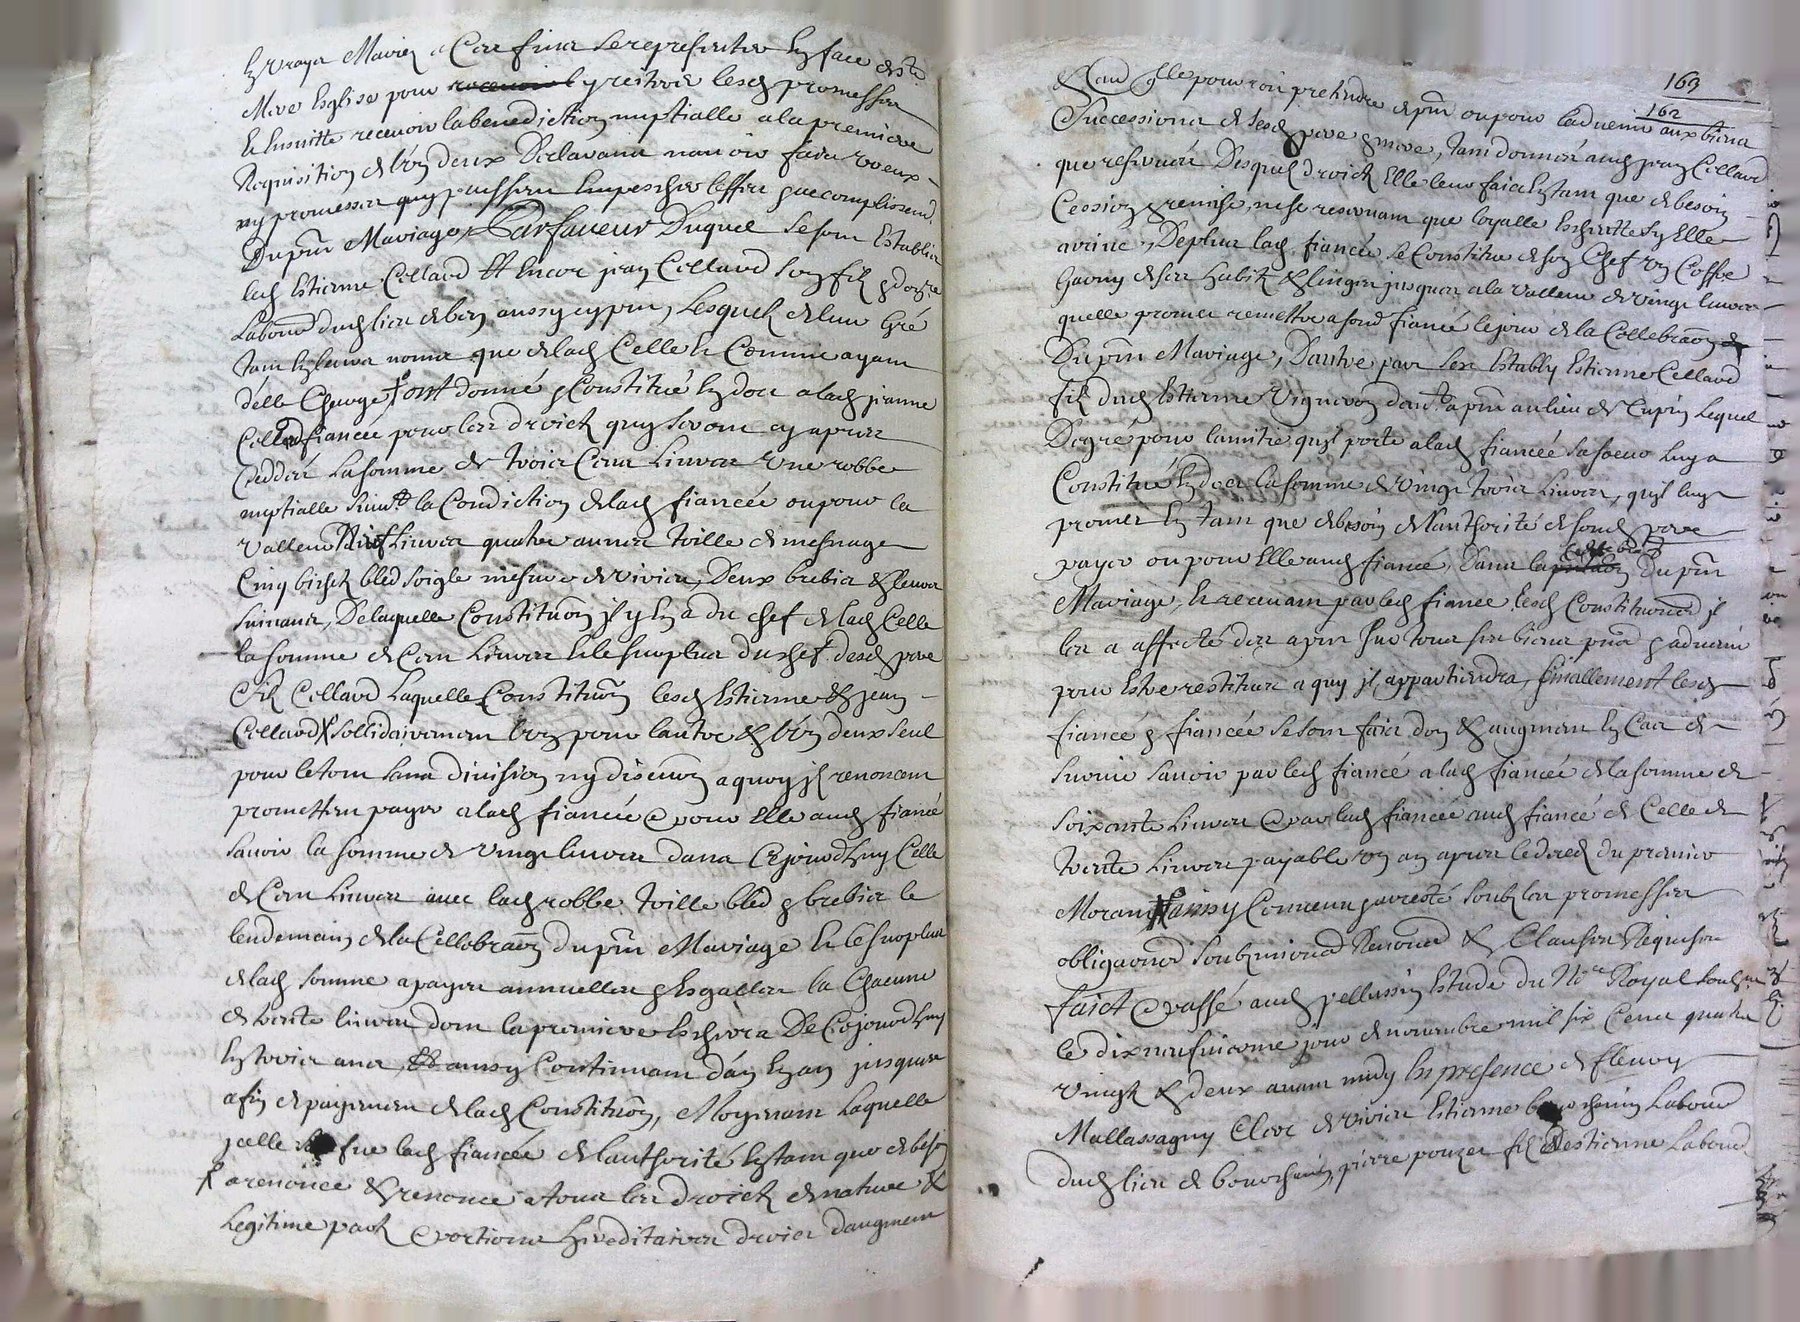 En vraye Mariez a Ces fins se representer En face de ste
Mere Esglise pour recevoir y reiterer lesd promesses
Et Ensuitte recevoir la benediction nuptialle a la premiere
Requisition de lũn deux Declarant navoir faict voeux
ny promesses quy puissent Empescher leffect & accomplissemt
Du pñt Mariage, Par faveur Duquel se sont Establis
led Estienne Collard Et Encor jean Collard son filz & donre
Labour dud lieu de aussy cy pñt, Lesquelz de leur Gré
tant En leurs noms que de lad Celle Et Comme ayant
delle Charge ont donné & Constitué En dot a lad jeanne
Collard fiancée pour les droictz quy seront cy apres
Ceddés La somme de trois Cens Livres Une robbe
nuptialle suivt la Condiction de lad fiancée ou pour la
valleur Livres quatre aunes toille de mesnage
Cinq bichetz bled soigle mesure de vivier, Deux brebis & leurs
suivans, De laquelle Constituõn jl y En a du chef de lad Celle
la somme de Cent Livres Et le surplus du chef desd pere
& filz Collard Laquelle Constituõn lesd Estienne & jean
Collard sollidairement lũn pour lautre & lũn deux seul
pour le tout sans division ny discuõn a quoy jlz renoncent
promettent payer a lad fiancée & pour Elle aud fiancé
savoir la somme de vingt livres dans Cejourdhuy Celle
de Cent Livres avec lad robbe toille bled & brebis le
lendemain de la Cellebraõn du pñt Mariage Et le surplus
de lad somme a payes annuelles & Esgalles la Chacune
de trente livres dont la premiere Eschera De Cejourdhuy
En trois ans, Et ainsy Continuant dan En an jusques
a fin de payement de lad Constituõn, Moyenant Laquelle
jcelle lad fiancée de lauthorité En tant que de besoin
a renoncé & renonce a tous les droictz de nature &
Legitime part & portions Hereditaires droict daugment
163
162
& au elle pourroit pretendre de pñt ou pour ladvenir aux biens
Successions de sesd pere & mere, tant donnés aud jean Collard
que reservés Desquelz droictz Elle leur faict En tant que de besoin
Cession & remise, ne se reservant que loyalle Escheutte sy Elle
arrive, De plus lad fiancée se Constitue de son Chef un Coffre
Garny de ses habitz & linges jusques a la valleur de vingt livres
quelle promet remettre a sond fiancé le jour de la Cellebraõn
Du pñt Mariage, Dautre part sest Estably Estienne Collard
filz dud Estienne Vigneron demt a pñt au lieu de Cupin Lequel
De gré pour lamitié quil porte a lad fiancée sa soeur luy a
Constitué En dot la somme de vingt trois Livres, quil luy
promet En tant que de besoin de lauthorité de sond pere
payer ou pour Elle aud fiancé, Dans la Cellebraõn Du pñt
Mariage, Et recevant par led fiancé lesd Constitutions jl
les a affectés des a pñt sur tous ses biens pñts & advenir
pour Estre restitués a quy jl appartiendra, finallement lesd
fiancé & fiancée se sont faict don & augment En Cas de
survie savoir par led fiancé a lad fiancée de la somme de
soixante Livres & par lad fiancée aud fiancé de Celle de
trente Livres payable un an apres le deced du premier
Mourant ainsy Convenu & arresté soubz les promesses
obligaõns soubzmions Renõns & Clauses Requises
faict & passé aud pellussin Estude du No.re Royal soubzne
le dix neufvieme jour de novembre mil six Cens quatre
vingtz & deux avant midy En presence de fleury
Mallassagny Clerc de vivier Estienne Labour
dud lieu de, pierre pouzet filz Destienne Labour